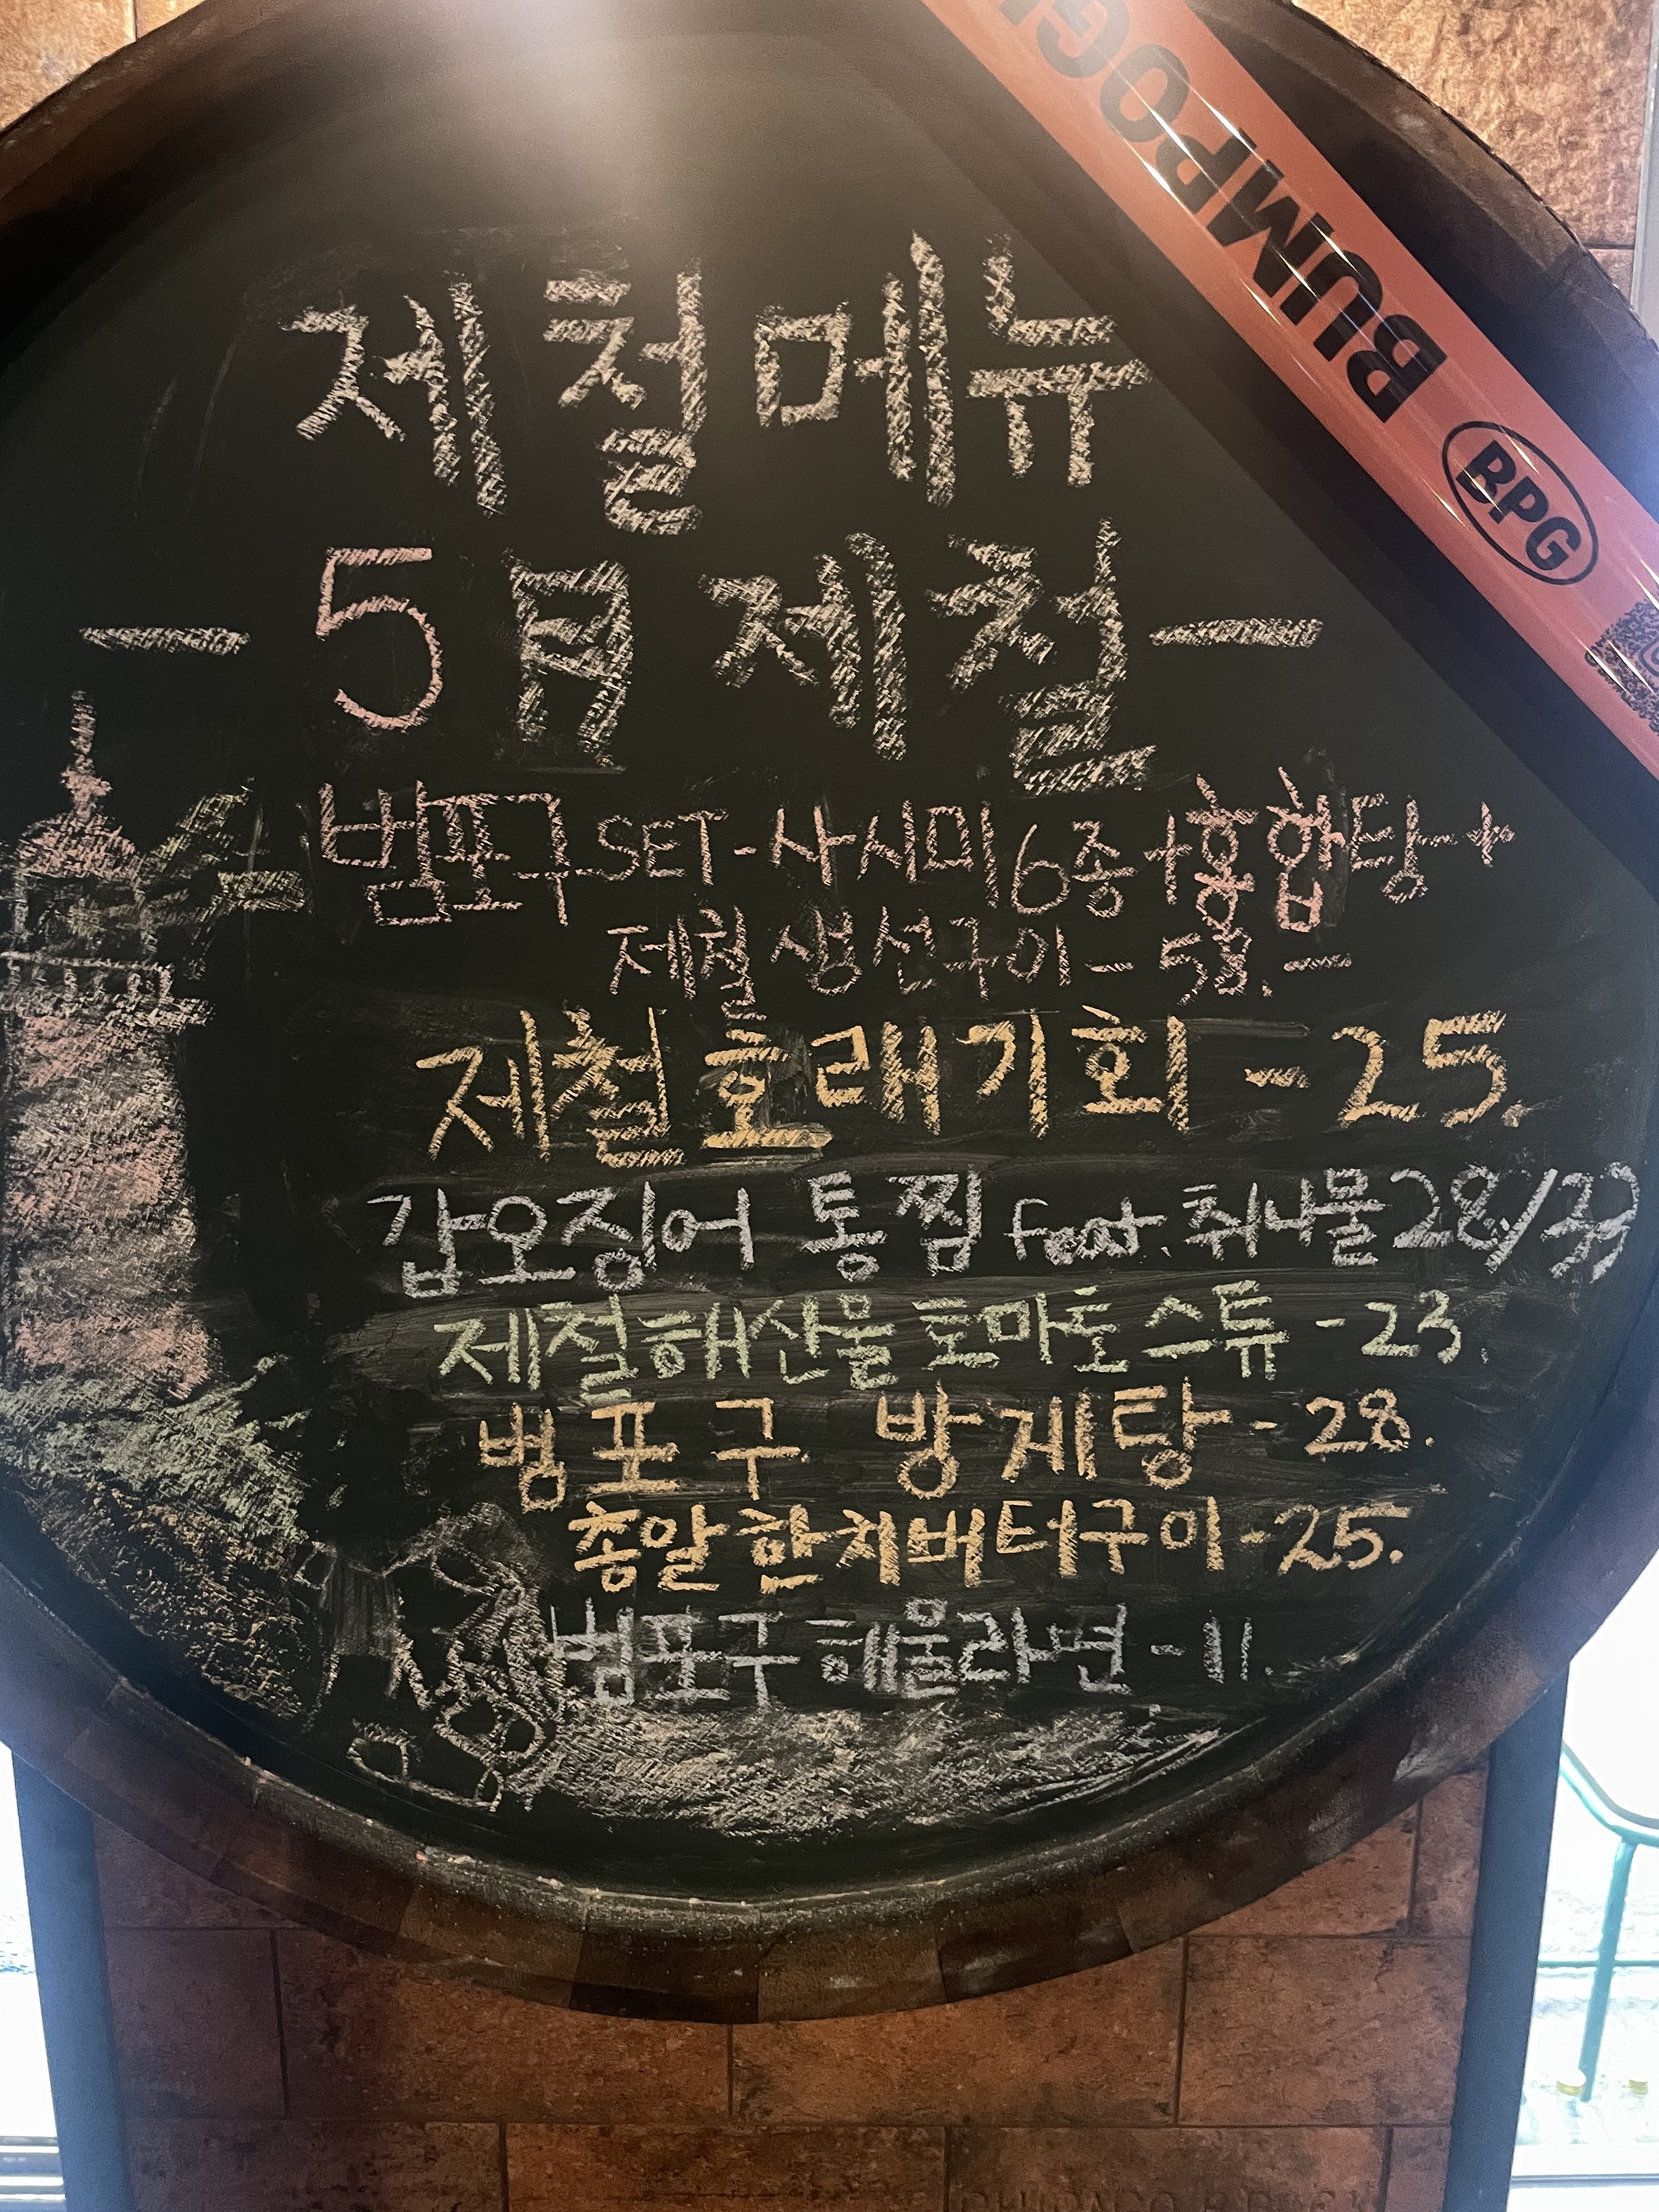 BUMPOG
BPG
제철메뉴
- 5月 제철 -
범포구 SET - 사시미 6종 + 홍합탕 +
제철 생선구이 - 58.-
제철 호래기회 - 25.
갑오징어 통찜 feat. 취나물 28/33
제철해산물 토마토 스튜 - 23.
범포구 방게탕 - 28.
총알한치버터구이 - 25.
범포구 해물라면 - 11.